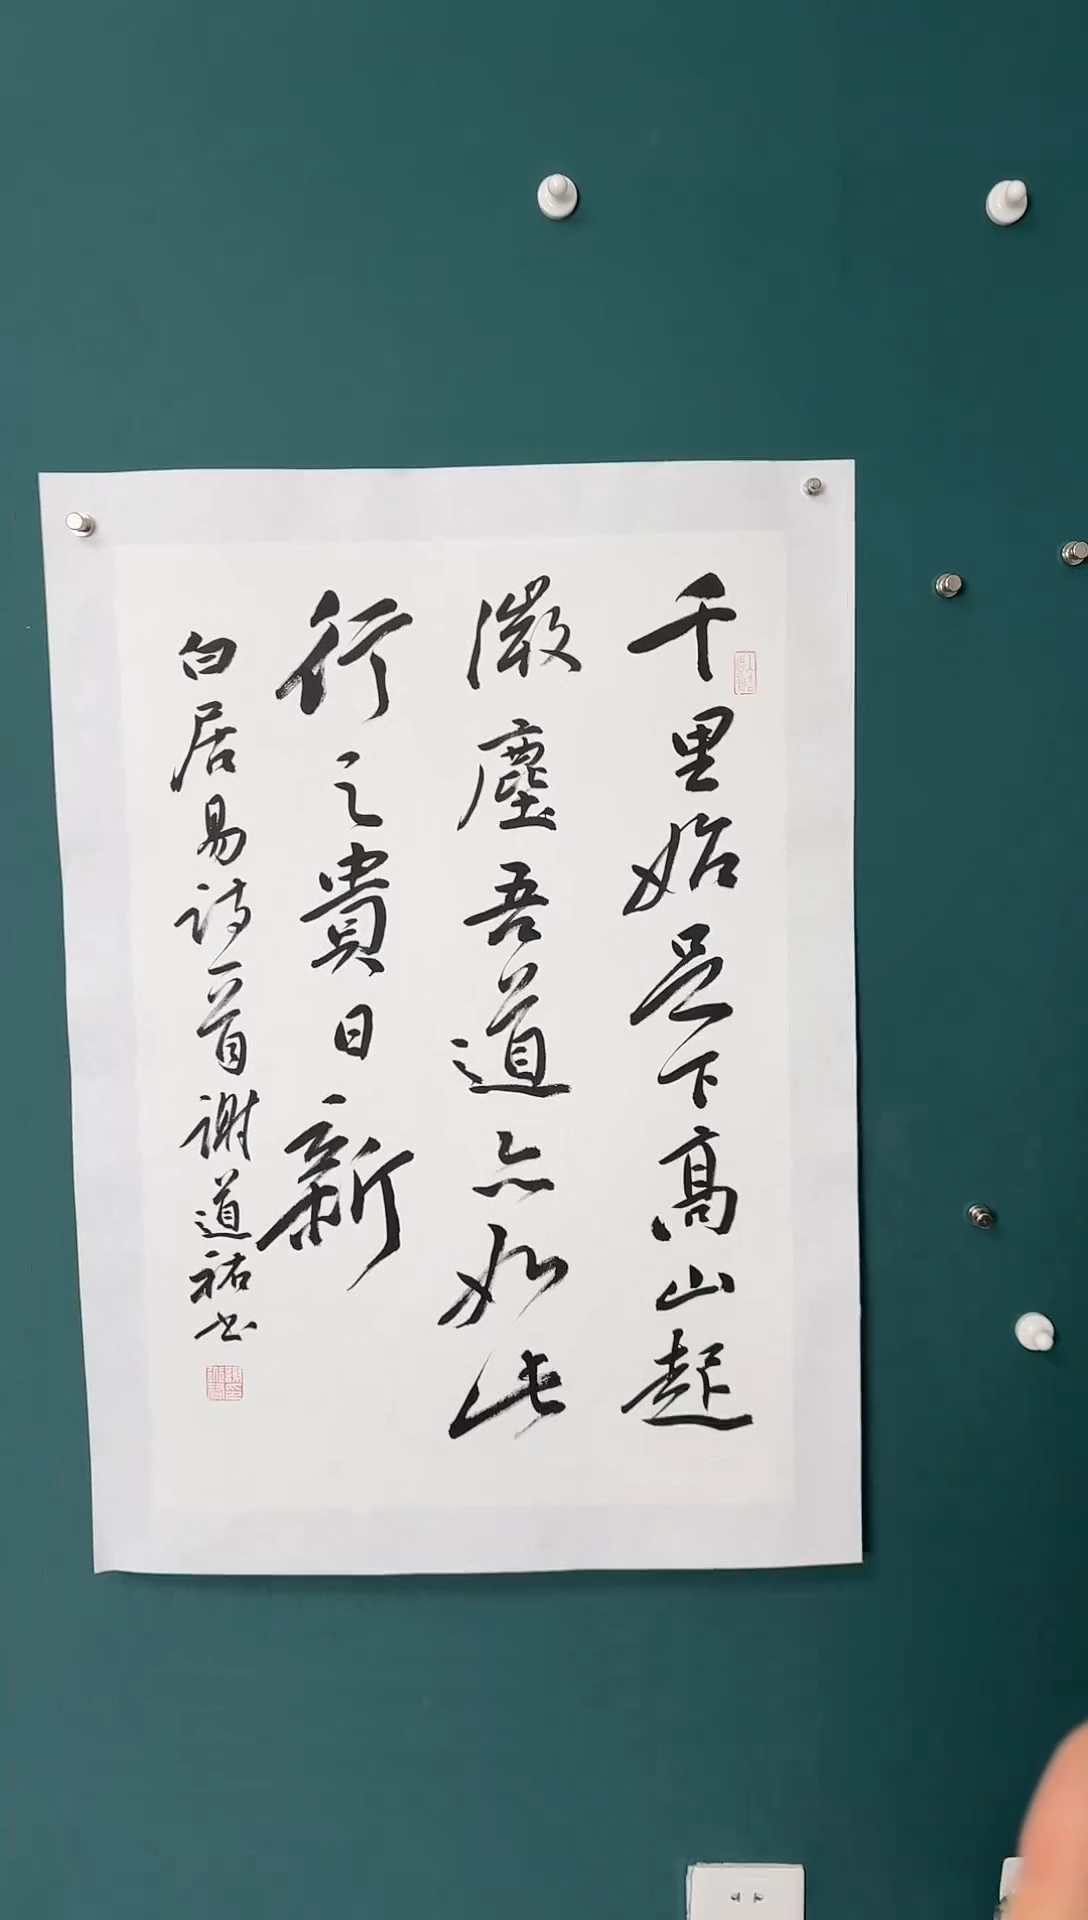 千里始足下高山起
微塵吾道亦如此
行之貴日新
白居易诗一首谢道祐书